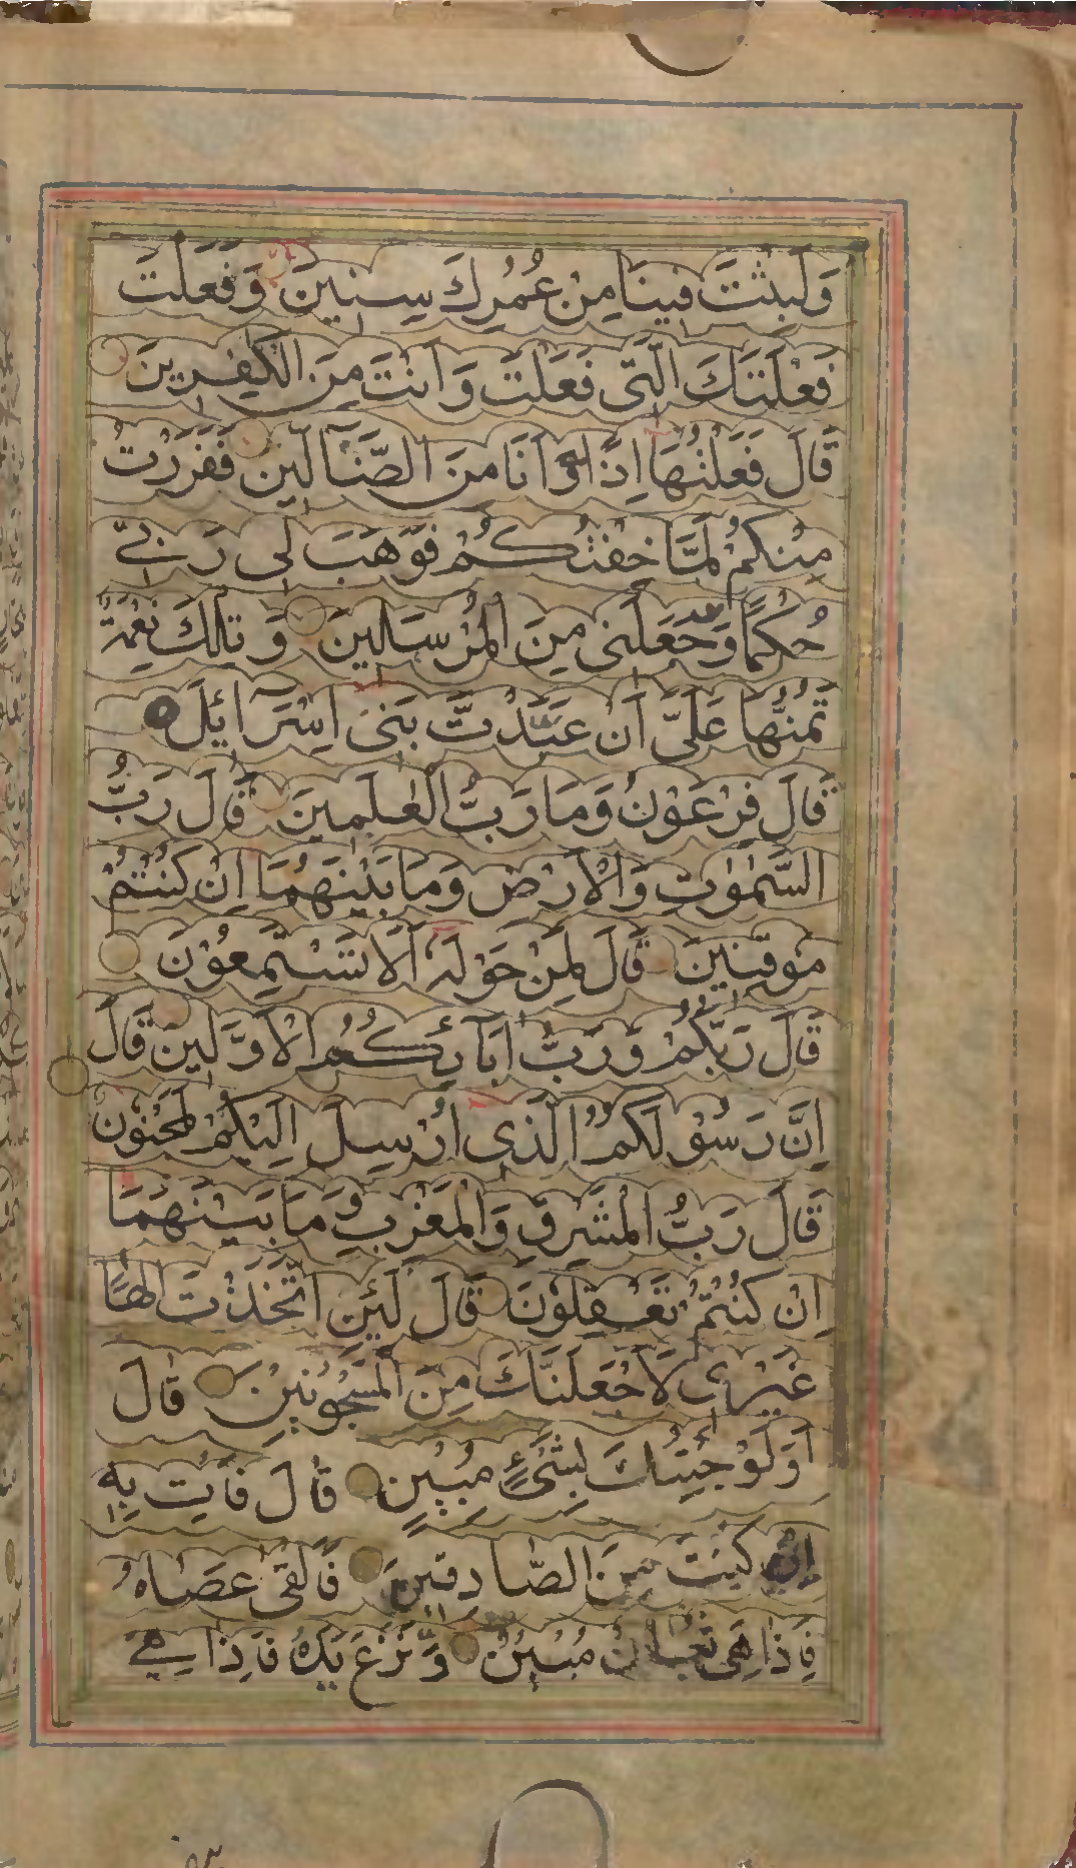 وَلَبِثْتَ فِينَا مِنْ عُمُرِكَ سِنِينَ وَفَعَلْتَ
فَعْلَتَكَ الَّتِي فَعَلْتَ وَاَنْتَ مِنَ الْكٰفِرِينَ
قَالَ فَعَلْتُهَا اِذًا وَاَنَا مِنَ الضَّآلِّينَ فَفَرَرْتُ
مِنْكُمْ لَمَّا خِفْتُكُمْ فَوَهَبَ لِي رَبِّي
حُكْمًا وَجَعَلَنِي مِنَ الْمُرْسَلِينَ وَتِلْكَ نِعْمَةٌ
تَمُنُّهَا عَلَيَّ اَنْ عَبَّدْتَّ بَنِي اِسْرَآئِلَ
قَالَ فِرْعَوْنُ وَمَا رَبُّ الْعٰلَمِينَ قَالَ رَبُّ
السَّمٰوٰتِ وَالْاَرْضِ وَمَا بَيْنَهُمَا اِنْ كُنْتُمْ
مُوقِنِينَ قَالَ لِمَنْ حَوْلَهٗ اَلَا تَسْتَمِعُوْنَ
قَالَ رَبُّكُمْ وَرَبُّ اٰبَآئِكُمُ الْاَوَّلِينَ قَالَ
اِنَّ رَسُوْلَكُمُ الَّذِي اُرْسِلَ اِلَيْكُمْ لَمَجْنُوْنٌ
قَالَ رَبُّ الْمَشْرِقِ وَالْمَغْرِبِ وَمَا بَيْنَهُمَا
اِنْ كُنْتُمْ تَعْقِلُوْنَ قَالَ لَئِنِ اتَّخَذْتَ اِلٰهًا
غَيْرِي لَاَجْعَلَنَّكَ مِنَ الْمَسْجُوْنِينَ قَالَ
اَوَلَوْ جِئْتُكَ بِشَيْءٍ مُبِينٍ قَالَ فَأْتِ بِهٖ
اِنْ كُنْتَ مِنَ الصَّادِقِينَ فَاَلْقٰى عَصَاهُ
فَاِذَا هِيَ ثُعْبَانٌ مُبِينٌ وَّنَزَعَ يَدَهٗ فَاِذَا هِيَ